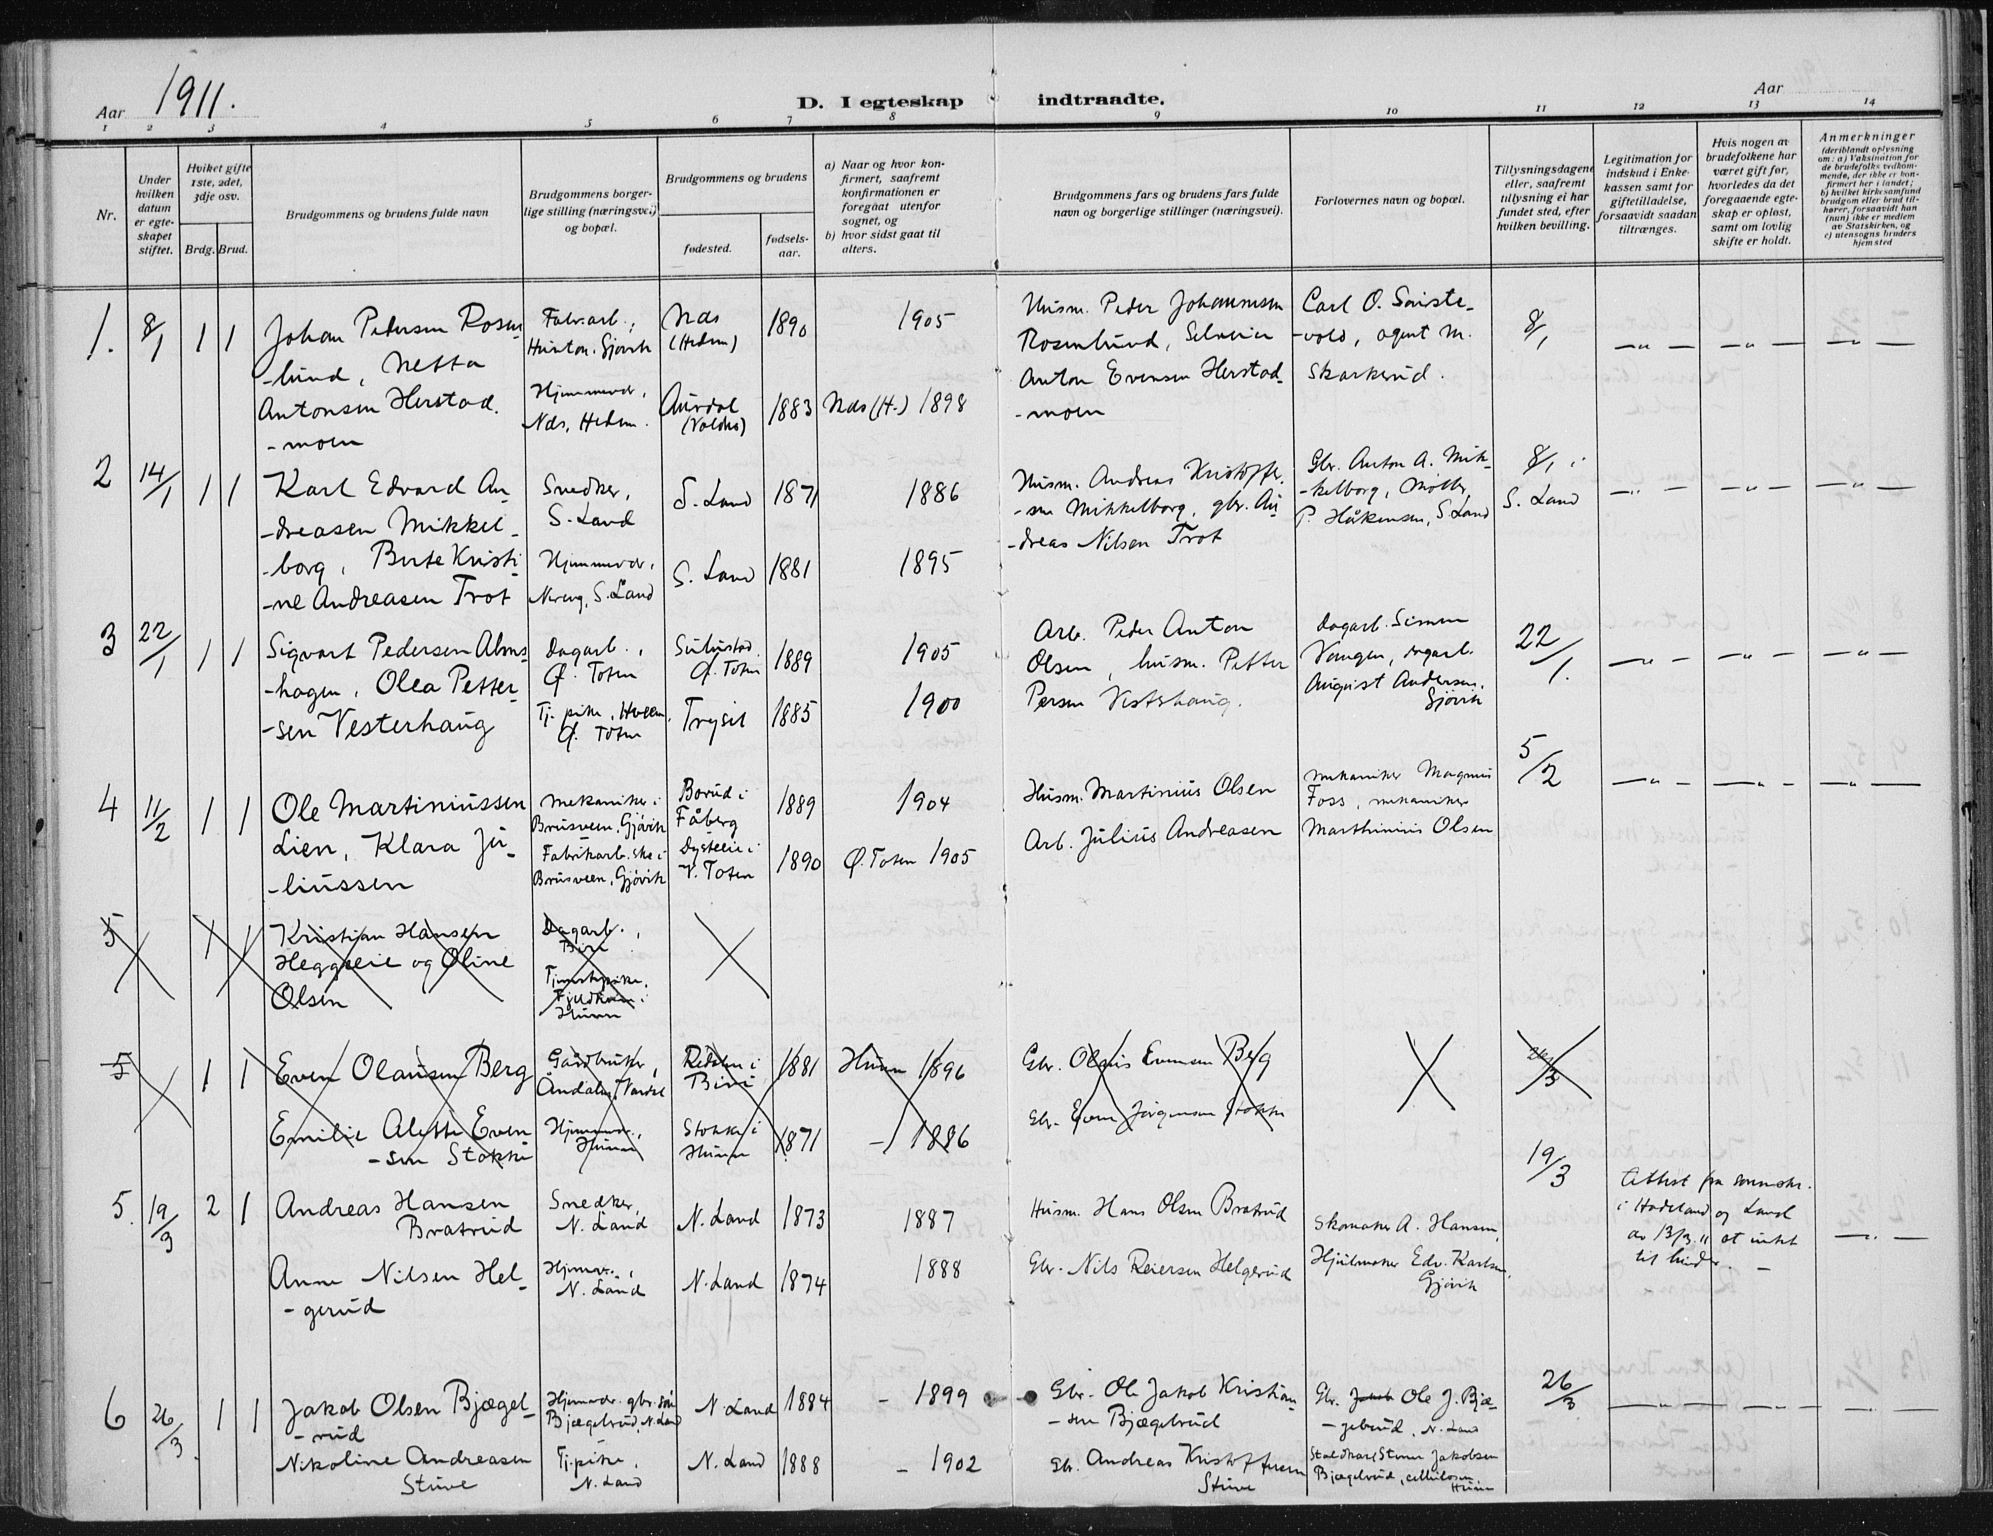 Aar 1911.
D. I egteskap indtraadte.
Aar
1 2 3 4 5 6 7 8 9 10 11 12 13 14
Nr.
Under hvilken datum er egte-skapet stiftet.
Hviket gifte 1ste, 2det, 3dje osv.
Brdg. Brud.
Brudgommens og brudens fulde navn
Brudgommens borger-lige stilling (næringsvei) og bopæl.
Brudgommens og brudens
fødested.
fødsels-aar.
a) Naar og hvor kon-firmert, saafremt konfirmationen er foregaat utenfor sognet, og
b) hvor sidst gaat til alters.
Brudgommens fars og brudens fars fulde navn og borgerlige stillinger (næringsvei).
Forlovernes navn og bopæl.
Tillysningsdagene eller, saafremt tillysning ei har fundet sted, efter hvilken bevilling.
Legitimation for indskud i Enke-kassen samt for giftetilladelse, forsaavidt saadan tiltrænges.
Hvis nogen av brudefolkene har været gift før, hvorledes da det foregaaende egte-skap er opløst, samt om lovlig skifte er holdt.
Anmerkninger
(deriblandt oplysning om: a) Vaksination for de brudefolks vedkom-mende, der ikke er kon-firmert her i landet; b) hvilket kirkesamfund brudgom eller brud til-hører, forsaavidt han (hun) ikke er medlem av Statskirken, og c) utensogns bruders hjemsted
1. 8/1 1 1
Johan Pedersen Rosen-
-lund, Netta
Antonsen Herstad.
-moen
Fabr.arb.,
Hunton, Gjøvik
Hjemmevær.,
Nds, Hedm.
Nds
(Hedm)
1890
1905
Aurdal
(Valdres)
1883
Nds (H.) 1898
Husm. Peder Johannesen
Rosenlund,
Anton Evensen Herstad-
-moen
Carl O.
-vold, agent M.
Skarkerud.
8/1
—„— —„— —„—
2 14/1 1 1
Karl Edvard An-
-dreasen Mikkel-
-borg, Berte Kristi-
-ne Andreasen Trot
Snedker,
S. Land
Hjemmevær.,
S. Land
S. Land 1871 1886
S. Land 1881 1895
Husm. Andreas Kristoffer-
-sen Mikkelborg, gbr. An-
-dreas Nilsen Trot
Gbr. Anton A. Mik-
-kelborg,
P. Håkensen, S. Land
8/1 i
S. Land
—„— —„— —„—
3 22/1 1 1
Sigvart Pedersen Alms-
-hagen, Olea Petter-
-sen Vesterhaug
Dagarb.,
Ø. Toten
Tj. pike, Hveem,
Ø. Toten
Ø. Toten
1889 1905
Trysil 1885 1900
Arb. Peder Anton
Olsen, husm. Petter
Persen Vesterhaug.
Dagarb. Simen
Vangen, dagarb.
August Andersen,
Gjøvik
22/1.
—„— —„— —„—
4 11/2 1 1
Ole Martiniussen
Lien, Klara Ju-
-liussen
Mekaniker i
Brusveen, Gjøvik
Fabrikarb.ske i
Brusveen, Gjøvik
Borud i
Fåberg
1889 1904
Dysteeie i
V. Toten
1890 Ø. Toten 1905
Husm. Martinius Olsen
Arb. Julius Andreasen
Mekaniker Magnus
Foss, mekaniker
Marthinius Olsen
5/2
—„— —„— —„—
5 1 1
Kristian Hansen
Heggeeie og Oline
Olsen
Dagarb.,
Biri
Tjenestepike,
Hunn
5 1 1
Even Olausen Berg
Emilie Alette Even
-sen Stokke
Gaardbruker,
Hjemmevær.,
Hunn
Redalen i
Biri
1881 Hunn 1896
Stokke i
Hunn
1871 — 1886
Gbr. Olaus Evensen Berg
Gbr. Even Jørgensen Stokke
26/3
5. 19/3 2 1
Andreas Hansen
Bratrud
Anne Nilsen Hel-
-gerud
Snedker,
N. Land
Hjemmev.,
N. Land
N. Land 1873 1887
N. Land 1874 1888
Husm. Hans Olsen Bratrud
Gbr. Nils Reiersen Helgerud
Skomaker A. Hansen,
Hjulmaker Edv. Karlsen,
Gjøvik
19/3
Attest fra sorenskr.
i Hadeland og Land
av 13/3 11 at intet
til hinder. —
—„—
6 26/3. 1 1
Jakob Olsen Bjæget-
-rud
Nikoline Andreasen
Stuve
Hjemmevær. gbr. søn
Bjægebrud, N. Land
Tj. pike,
N. Land
N. Land 1884 — 1899
N. Land 1888 — 1902
Gbr. Ole Jakob Kristian-
-sen Bjægebrud
Gbr. Andreas Kristoffersen
Stuve
Gbr. Jakob Ole J. Bjæ-
-gebrud, N. Land
Staldkarl Jakobsen
Bjægebrud, cellulosen
Hunn
26/3
—„— —„— —„—